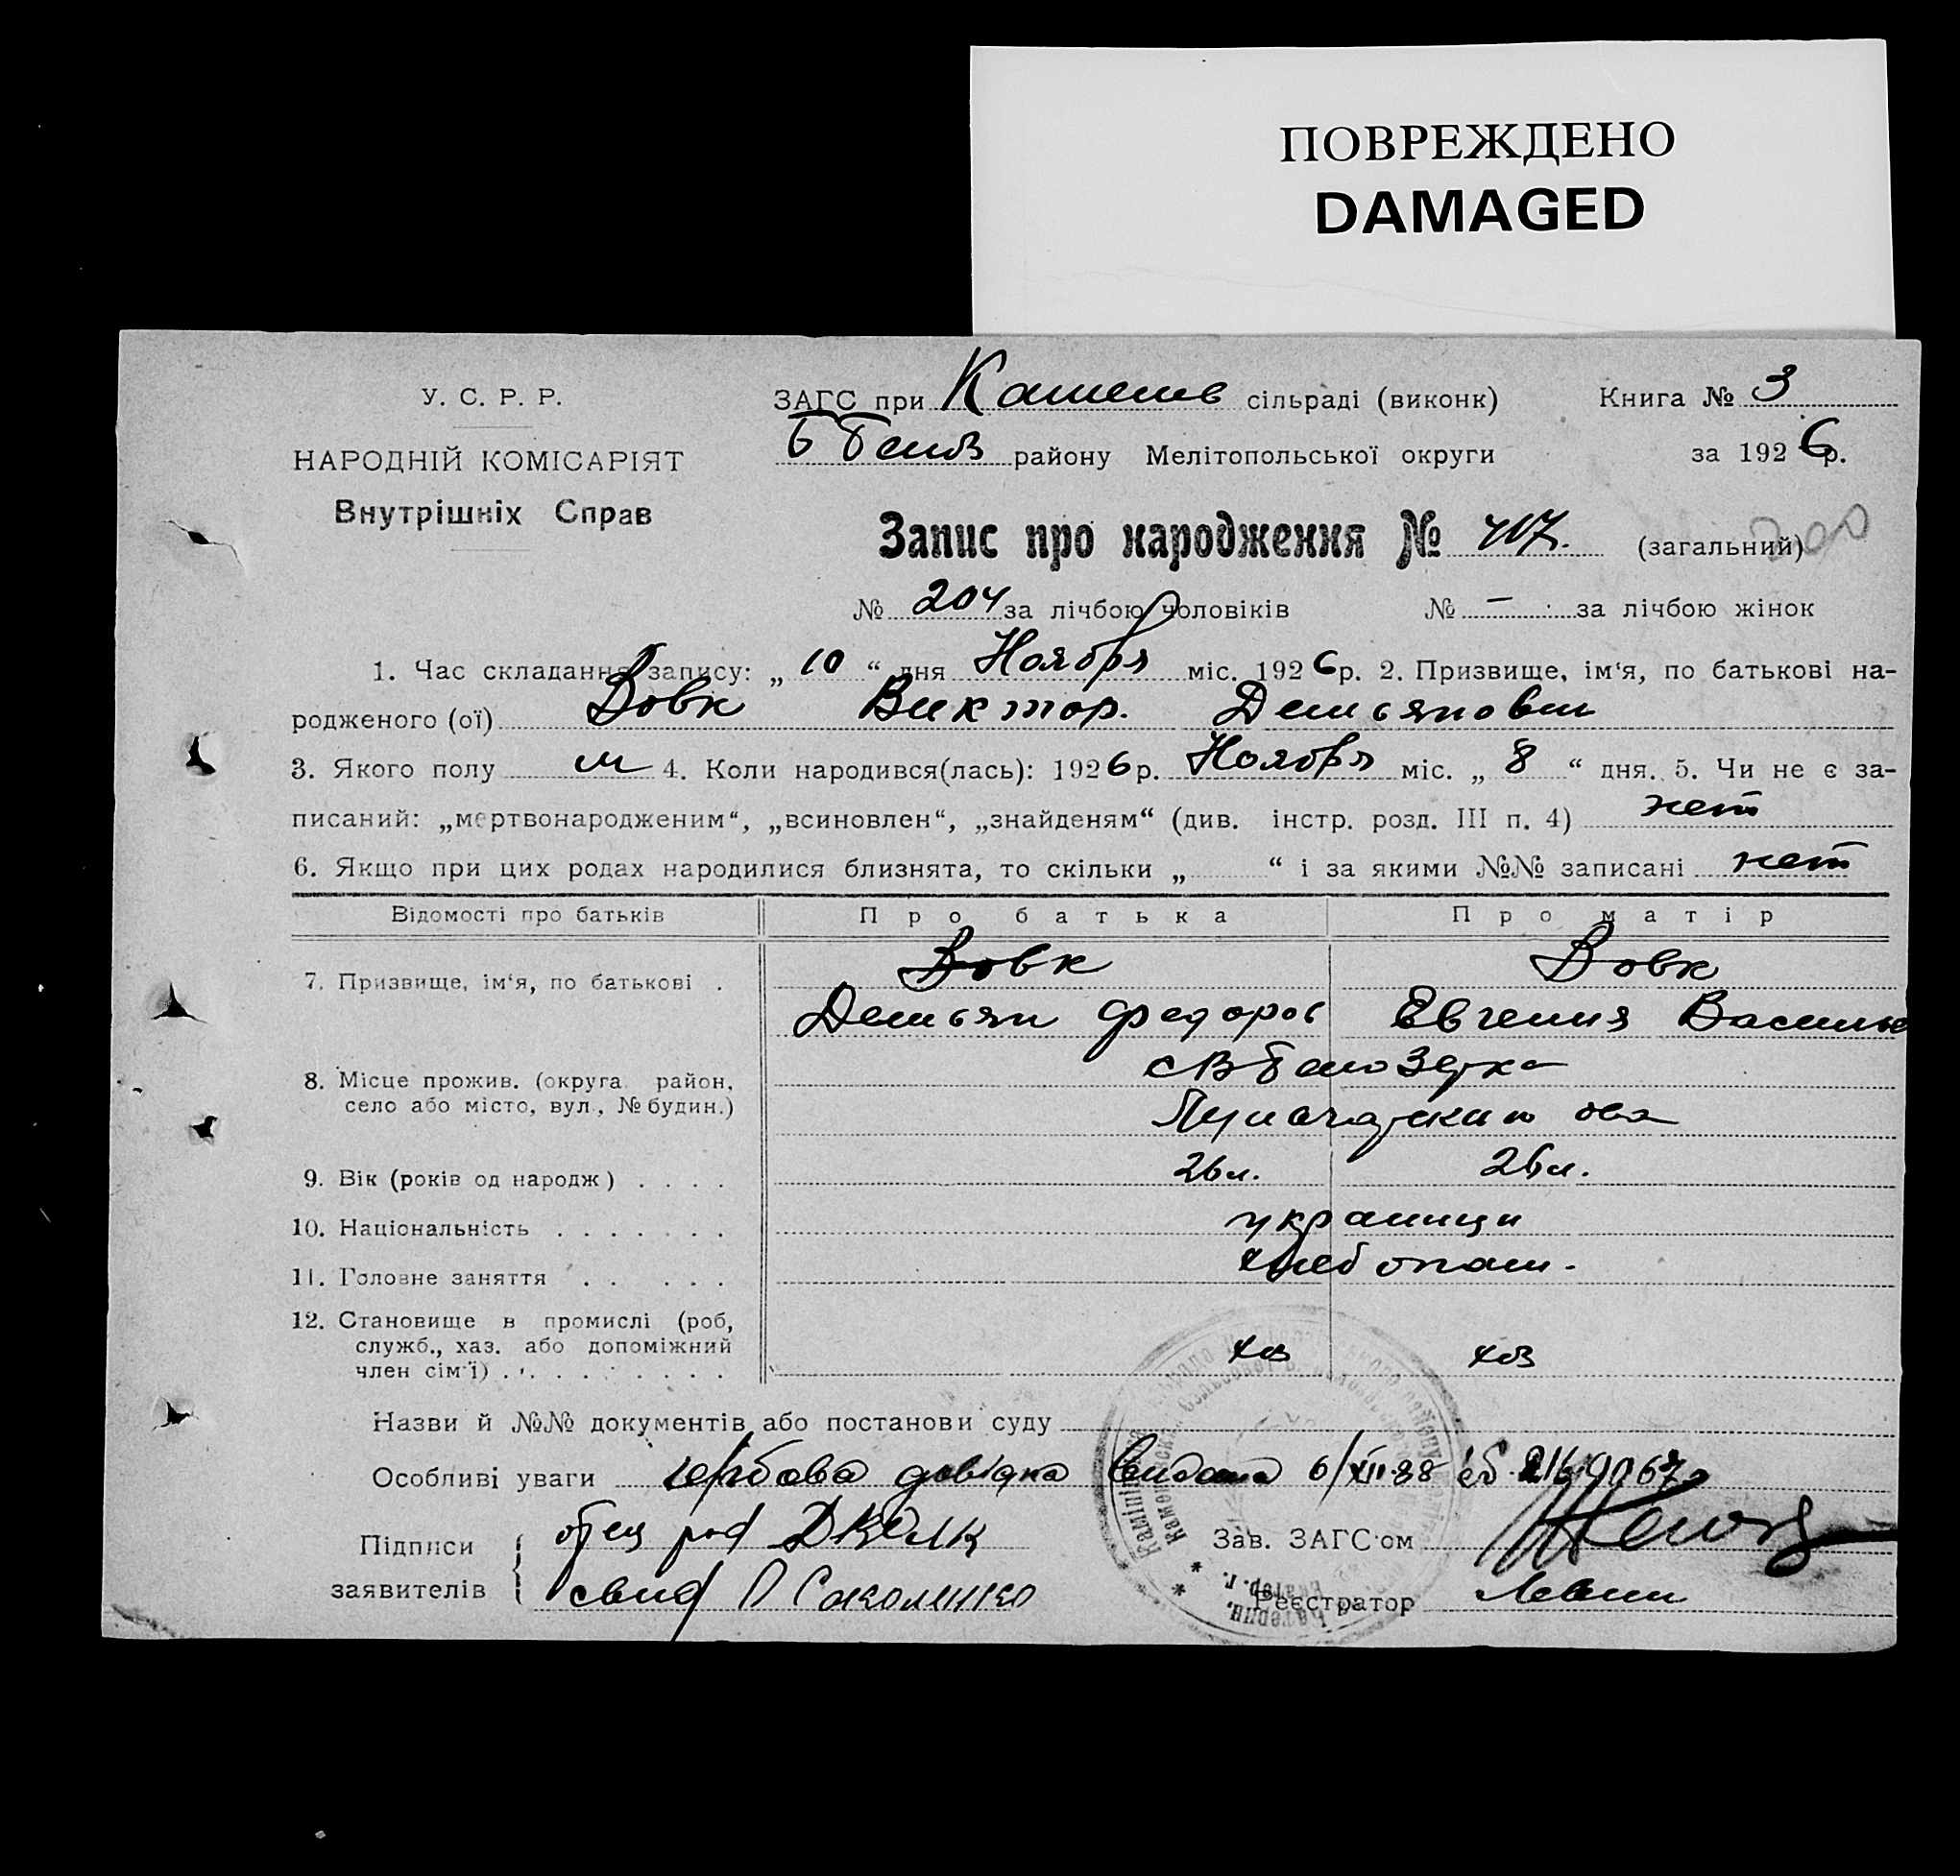 ПОВРЕЖДЕНО
DAMAGED
У. С. Р. Р.
НАРОДНІЙ КОМІСАРІЯТ
Внутрішніх Справ
ЗАГС при Каменев сільраді (виконк) Книга № 3
району Мелітопольської округи за 1926 р.
Запис про народження № 417. (загальний)
№ 204 за лічбою чоловіків № — за лічбою жінок
1. Час складання запису: „ 10 “ дня Ноября міс. 1926 р. 2. Призвище, ім'я, по батькові на-
родженого (ої) Вовк Виктор. Демьянович
3. Якого полу м 4. Коли народився(лась): 1926 р. Ноября міс. „ 8 “ дня. 5. Чи не є за-
писаний: „мертвонародженим“, „всиновлен“, „знайденям“ (див. інстр. розд. III п. 4) нет
6. Якщо при цих родах народилися близнята, то скільки „ “ і за якими №№ записані нет
Відомості про батьків Про батька Про матір
7. Призвище, ім'я, по батькові . Вовк Вовк
Демьян Федоров Евгения Василье
8. Місце прожив. (округа район, село або місто, вул., № будин.)
9. Вік (років од народж) . . . . 26 л. 26 л.
10. Національність . . . . . . . украинци
11. Головне заняття . . . . . хлебопаш.
12. Становище в промислі (роб, служб., хаз. або допоміжний член сім'ї) . . . . . . . . . хоз хоз
Назви й №№ документів або постанови суду
Особливі уваги гербова довідка видана 6/XII-88
Підписи заявителів
отец
свид
Зав. ЗАГС'ом
Реєстратор